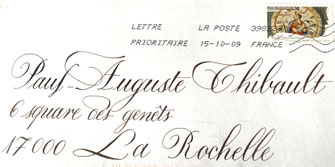 LETTRE LA POSTE
PRIORITAIRE 15-10-09 FRANCE
Paul-Auguste Thibault
6 square des genêts
17000 La Rochelle